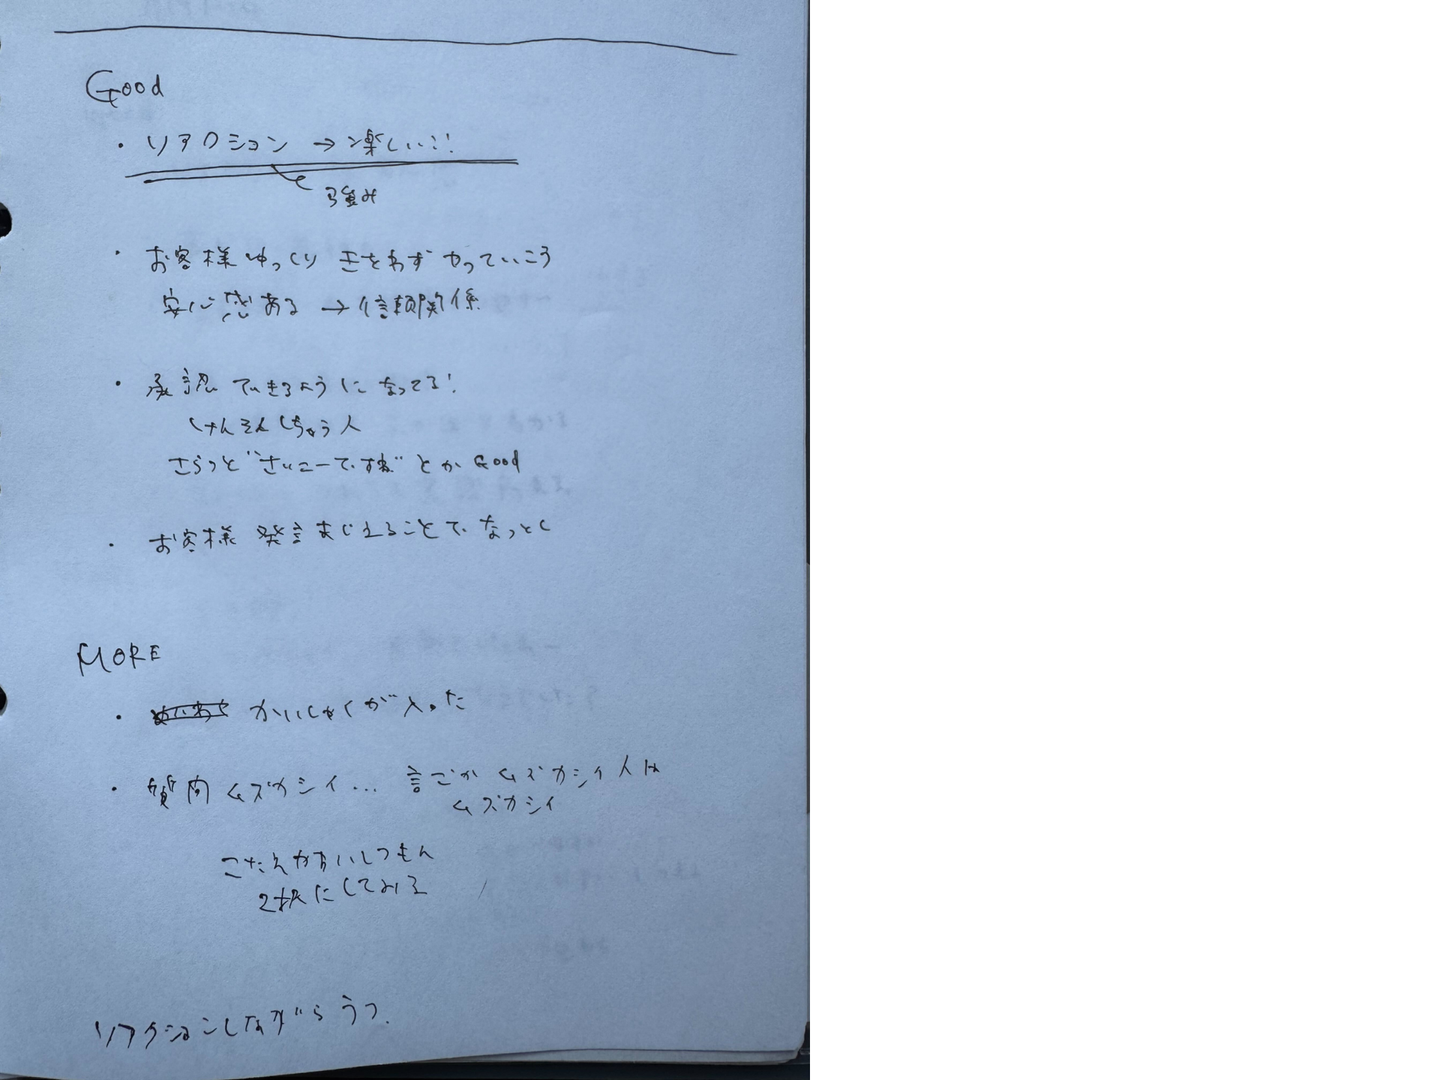 Good
・リアクション → 楽しい!!
強み
・お客様ゆっくり きをわず やっていこう
安心感ある → 信頼関係
・承認できるようになってる!
けんそんしちゃう人
さらっと"さいこーですね"とか Good
・お客様 発言まじえることで なっとく
MORE
・かいしゃくが入った
・質問ムズカシイ... 言ごか ムズカシイ人は
ムズカシイ
こたえやすいしつもん
2択にしてみる
リアクションしながらうつ.